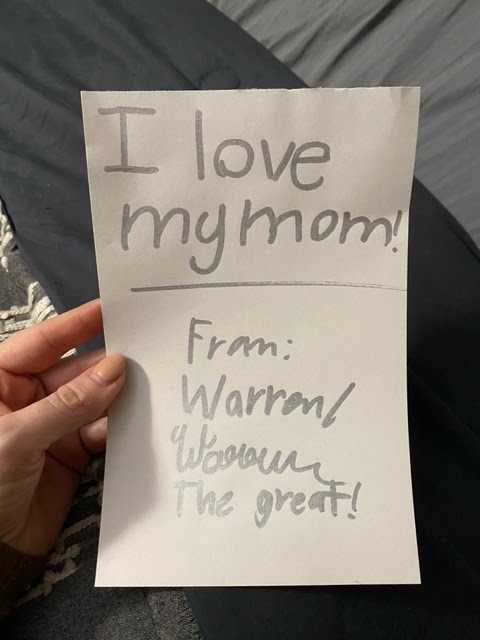 I love
my mom!
Fram:
Warren/
Warren
The great!